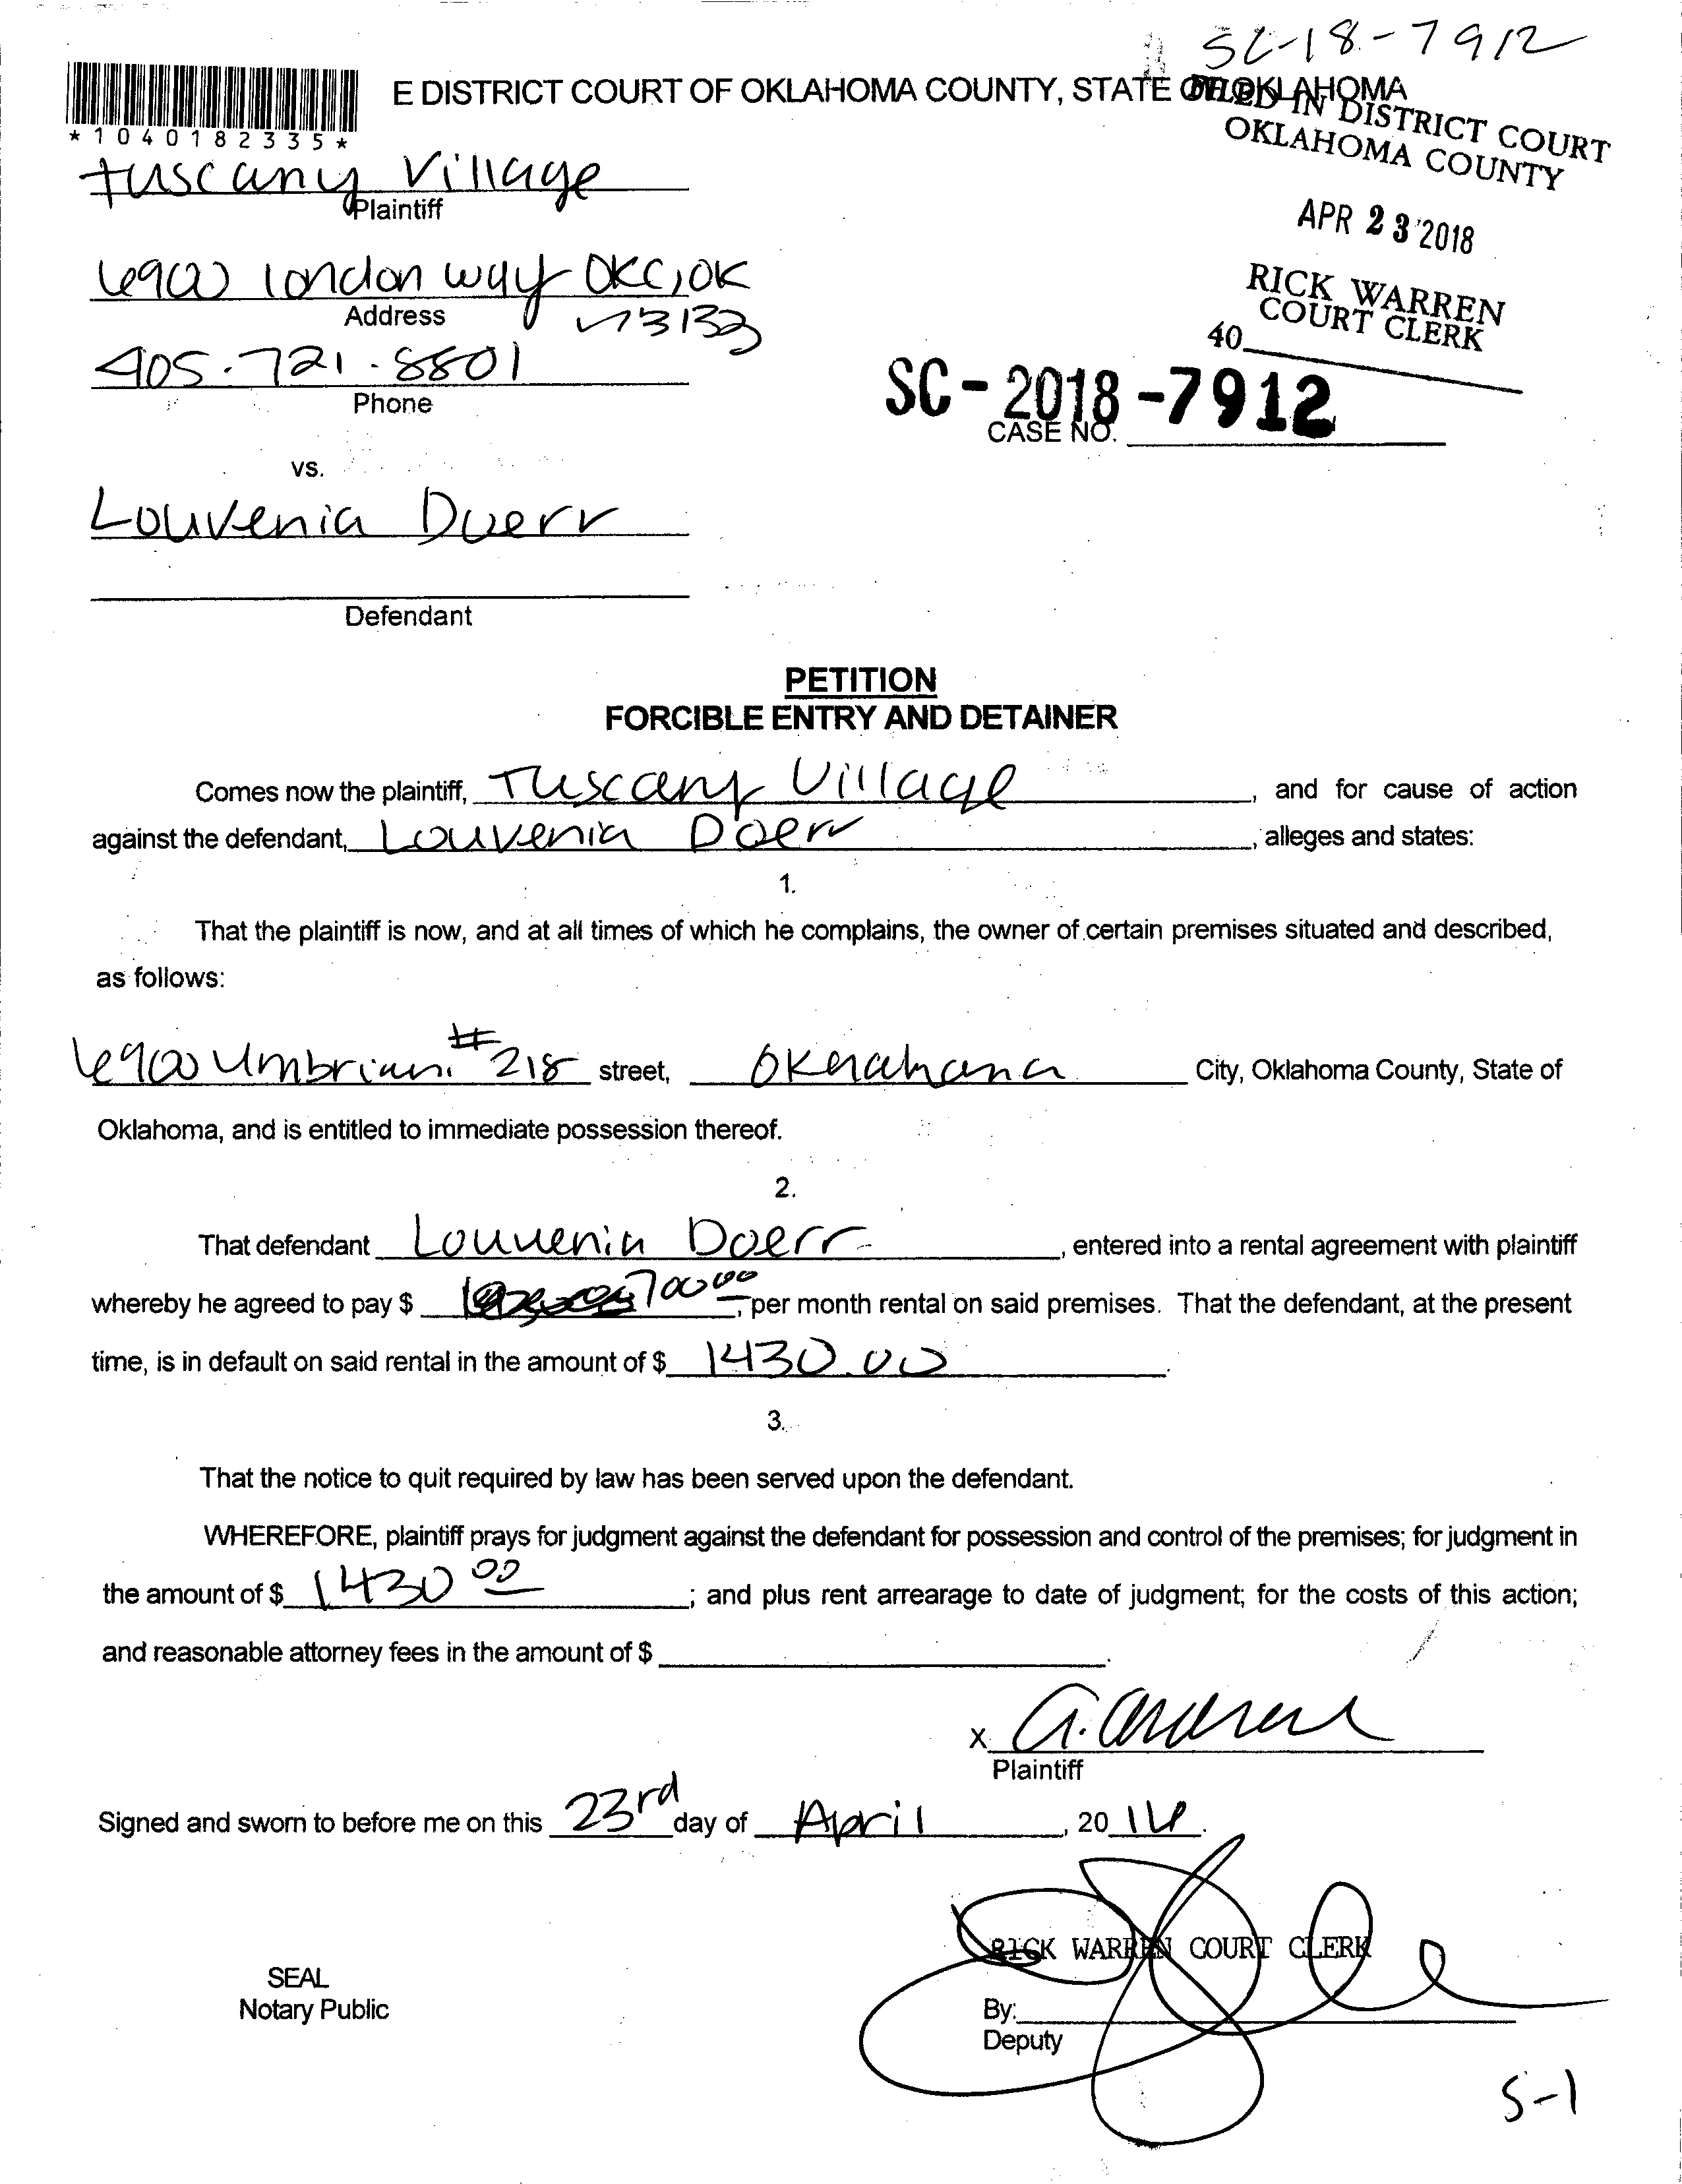 SC-18-7912
E DISTRICT COURT OF OKLAHOMA COUNTY, STATE OF OKLAHOMA
FILED IN DISTRICT COURT
OKLAHOMA COUNTY
*1040182335*
Tuscany Village
Plaintiff
APR 23 2018
6900 London way OKC, OK
Address
73132
RICK WARREN
COURT CLERK
40
405.721.8801
Phone
SC-2018-7912
CASE NO.
vs.
Louvenia Doerr
Defendant
PETITION
FORCIBLE ENTRY AND DETAINER
Comes now the plaintiff, Tuscany Village, and for cause of action
against the defendant, Louvenia Doerr, alleges and states:
1.
That the plaintiff is now, and at all times of which he complains, the owner of certain premises situated and described,
as follows:
6900 Umbrian #218 street, City, Oklahoma County, State of
Oklahoma, and is entitled to immediate possession thereof.
2.
That defendant Louvenia Doerr, entered into a rental agreement with plaintiff
whereby he agreed to pay $ 700 00, per month rental on said premises. That the defendant, at the present
time, is in default on said rental in the amount of $ 1430.00.
3.
That the notice to quit required by law has been served upon the defendant.
WHEREFORE, plaintiff prays for judgment against the defendant for possession and control of the premises; for judgment in
the amount of $ 1430 00; and plus rent arrearage to date of judgment; for the costs of this action;
and reasonable attorney fees in the amount of $ .
X
Plaintiff
Signed and sworn to before me on this 23rd day of April, 20
RICK WARREN COURT CLERK
SEAL
Notary Public
By:
Deputy
S-1